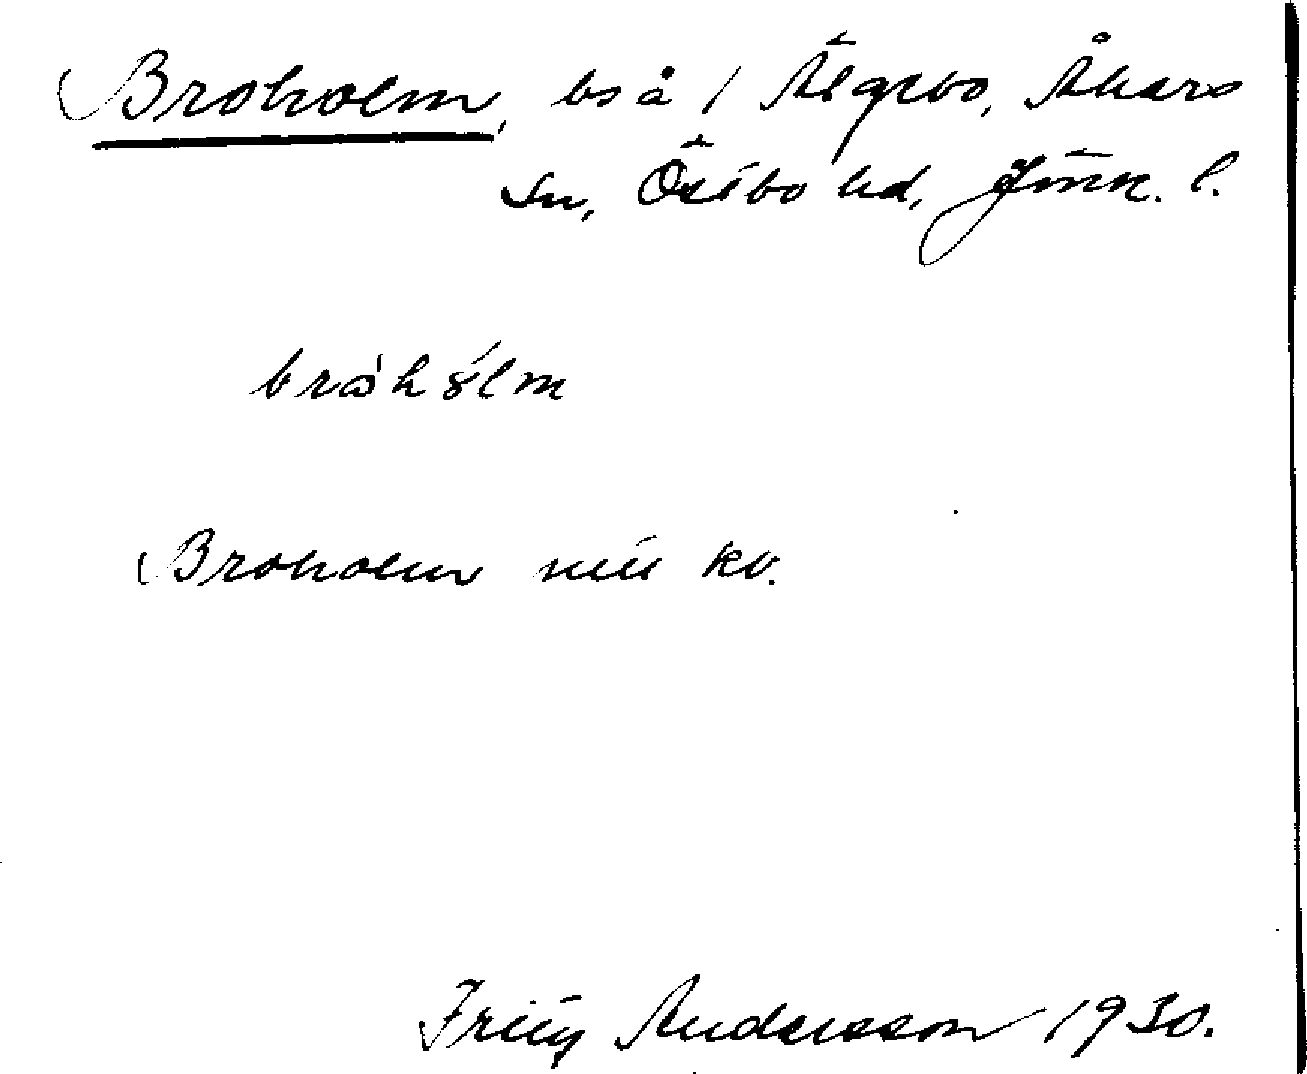 Broholm, bs å / Älgebo, Åkers
sn, Östbo hd, Jönk. l.
bròhólm
Broholm mis kv.
Fritz Andersson 1930.